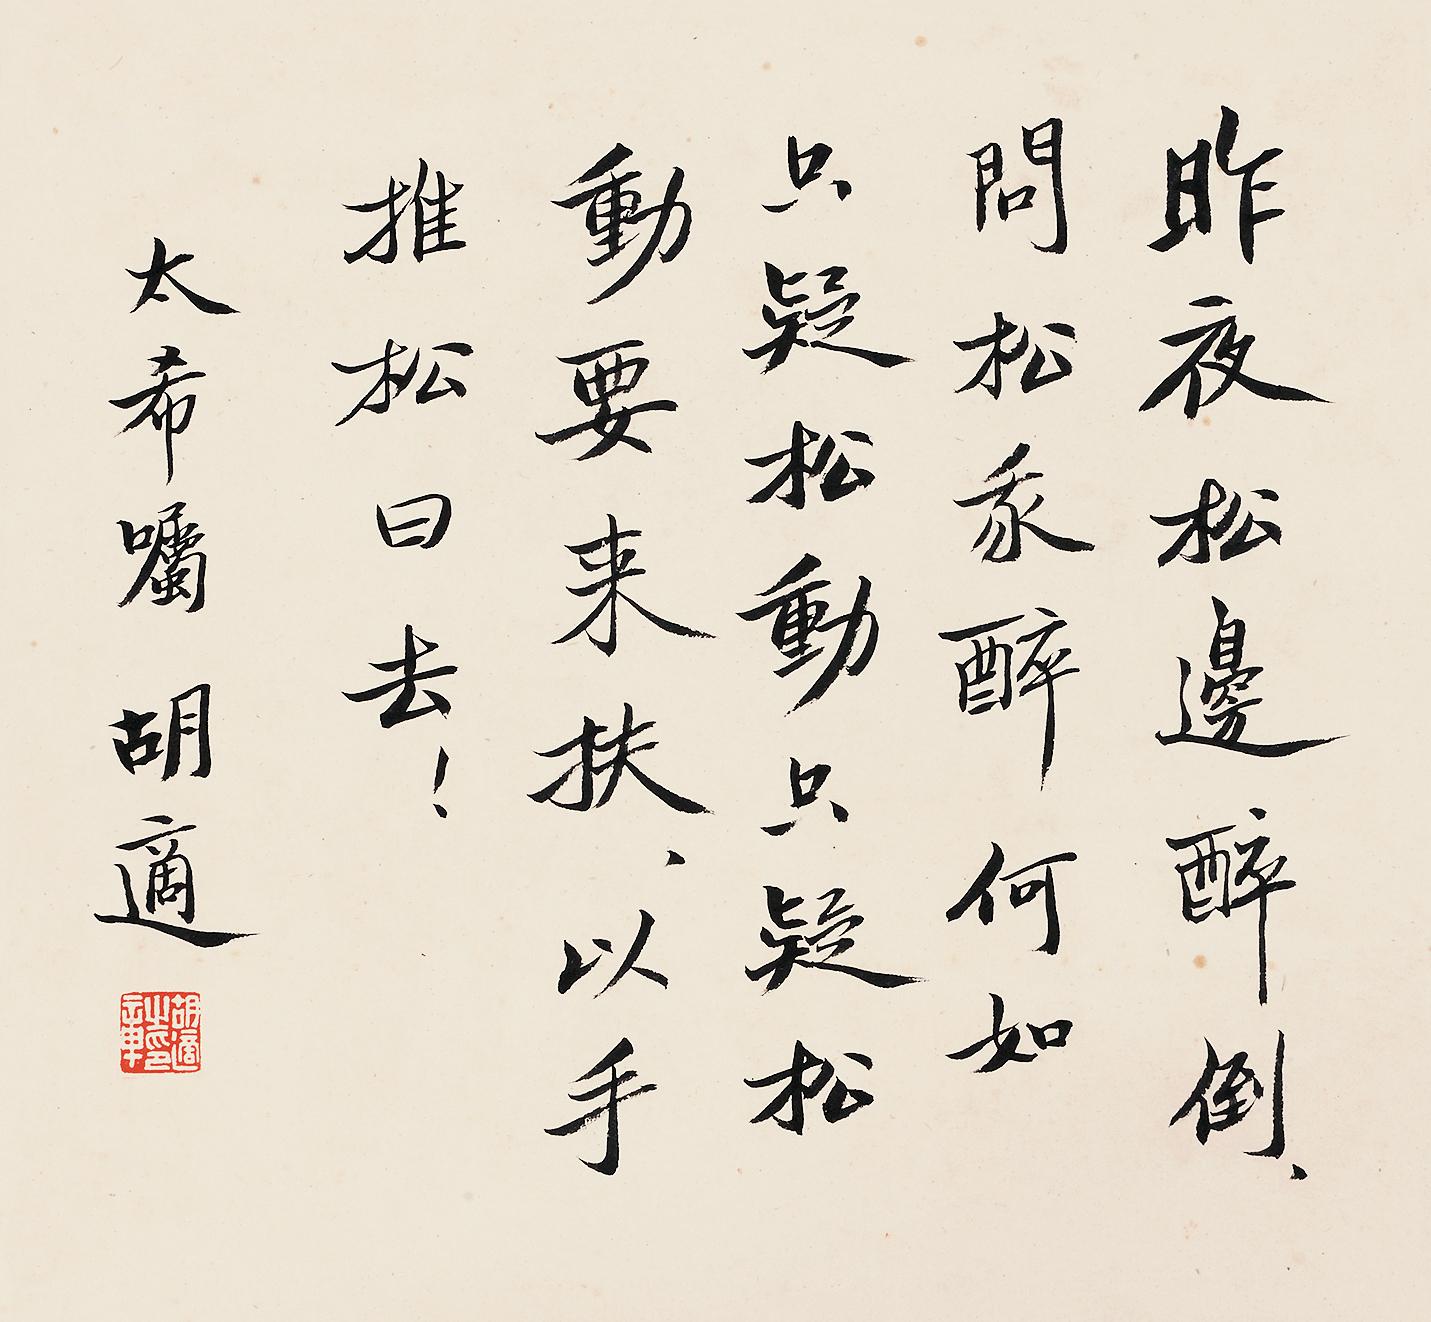 昨夜松邊醉倒、
問松我醉何如
只疑松動只疑松
動要来扶、以手
推松曰去！
太希囑 胡適
胡適之印章